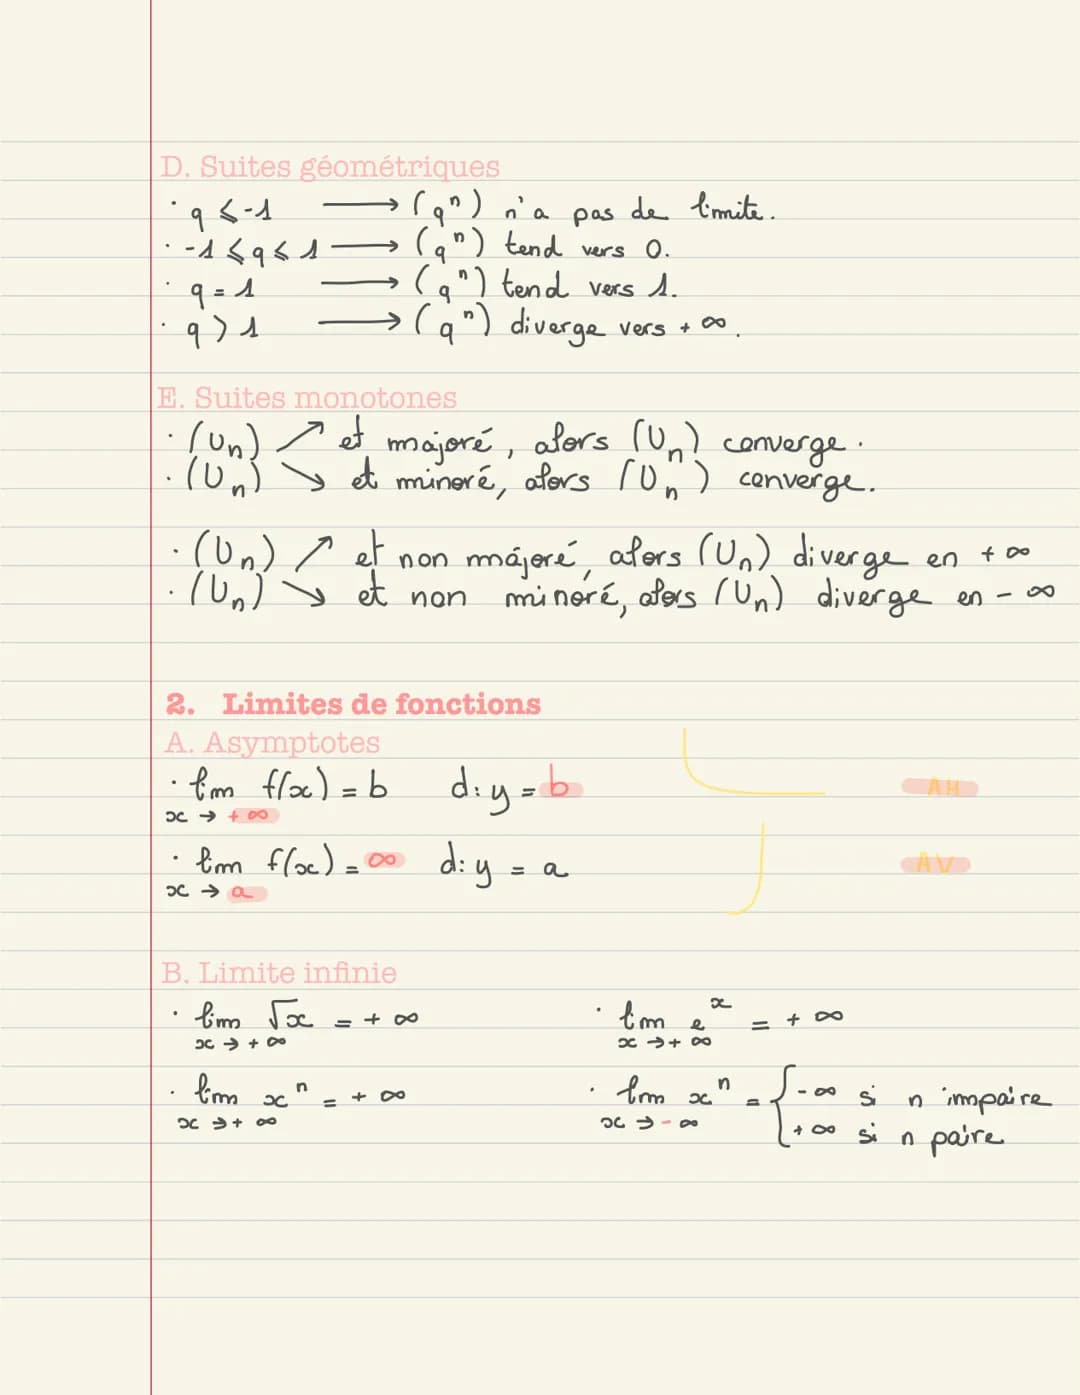 D. Suites géométriques
· q ⩽ -1 → (qⁿ) n'a pas de limite.
· -1 ⩽ q ⩽ 1 → (qⁿ) tend vers 0.
· q = 1 → (qⁿ) tend vers 1.
· q > 1 → (qⁿ) diverge vers + ∞.
E. Suites monotones
· (Un) ↗ et majoré, alors (Un) converge.
· (Un) ↘ et minoré, alors (Un) converge.
· (Un) ↗ et non majoré, alors (Un) diverge en + ∞
· (Un) ↘ et non minoré, alors (Un) diverge en - ∞
2. Limites de fonctions
A. Asymptotes
· lim f(x) = b d: y = b AH
x → + ∞
· lim f(x) = ∞ d: y = a AV
x → a
B. Limite infinie
· lim √x = + ∞ · lim eˣ = + ∞
x → + ∞ x → + ∞
· lim xⁿ = + ∞ · lim xⁿ = { - ∞ si n impaire
x → + ∞ x → - ∞ + ∞ si n paire